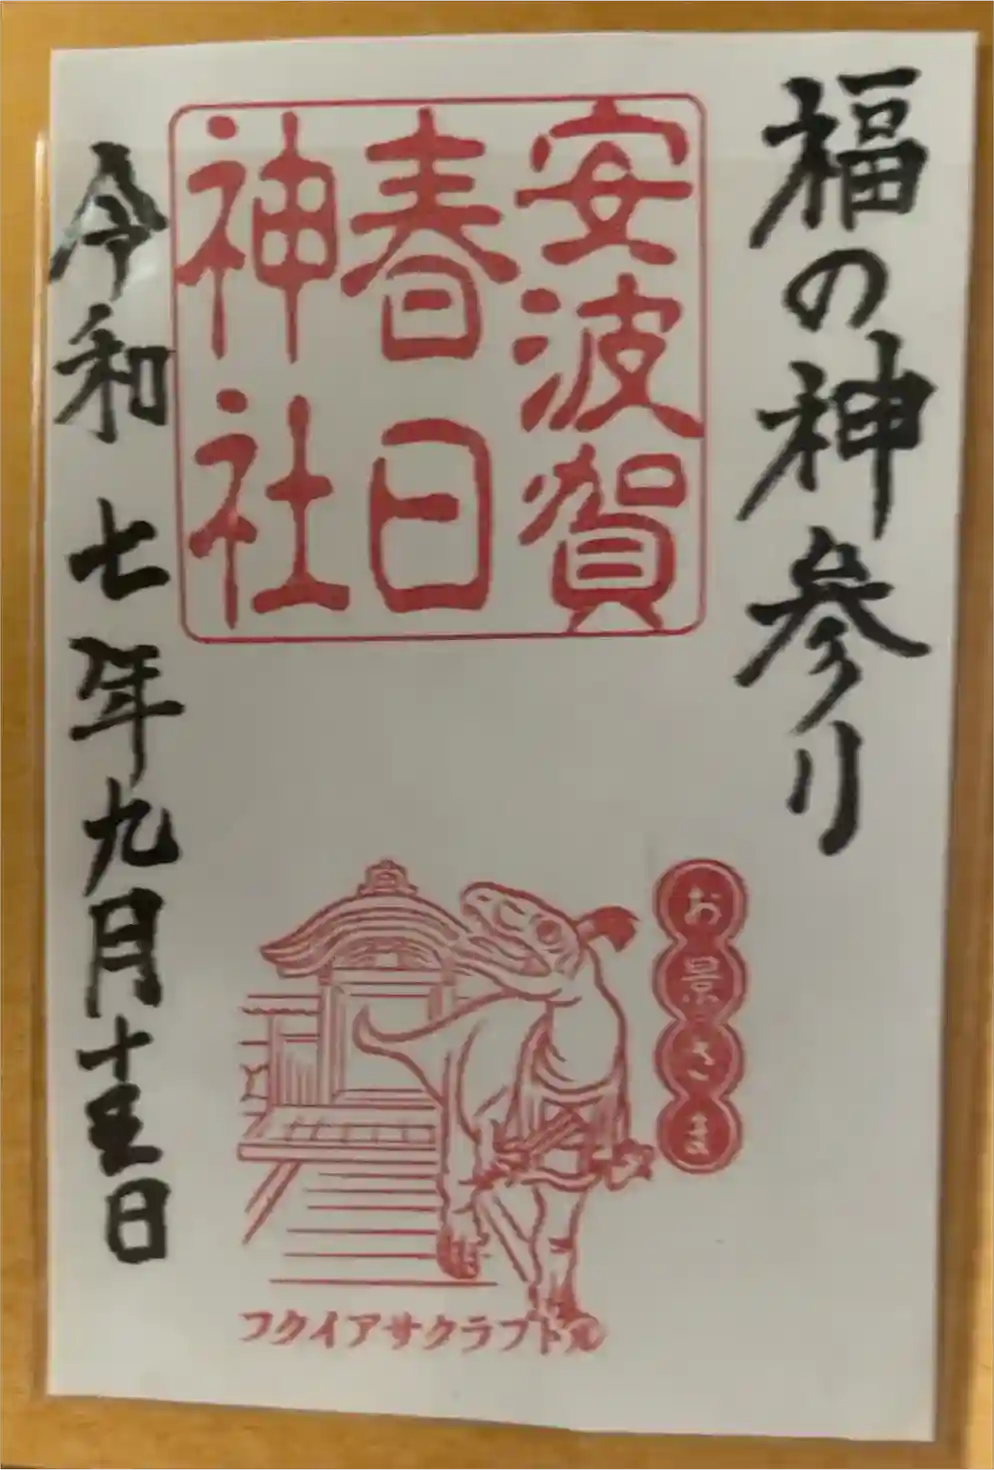 福の神参り
安波賀
春日
神社
お景さま
フクイアサクラプト丸
令和七年九月十五日